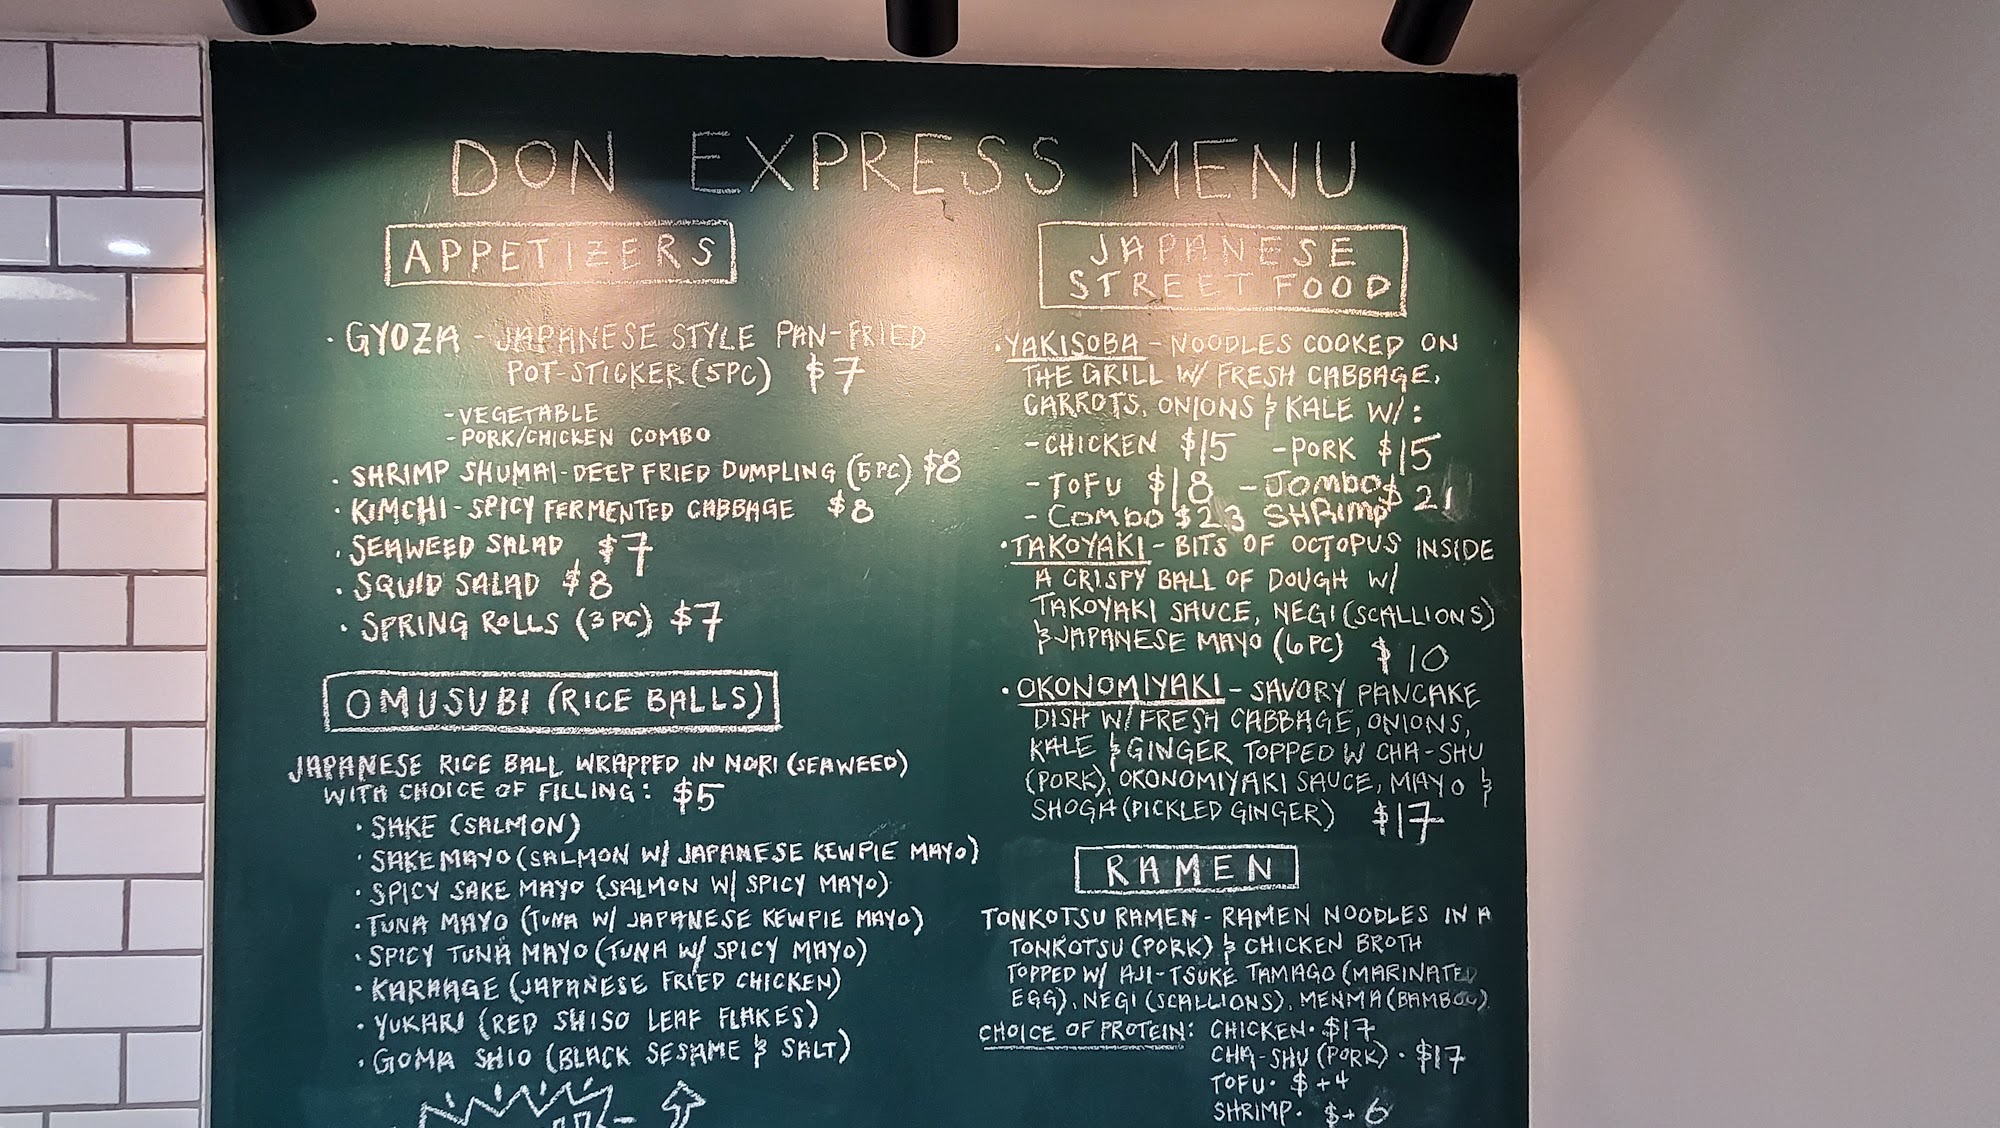 DON EXPRESS MENU
APPETIZERS
· GYOZA - JAPANESE STYLE PAN-FRIED
POT-STICKER (5PC) $7
- VEGETABLE
- PORK/CHICKEN COMBO
· SHRIMP SHUMAI - DEEP FRIED DUMPLING (5 PC) $8
· KIMCHI - SPICY FERMENTED CABBAGE $8
· SEAWEED SALAD $7
· SQUID SALAD $8
· SPRING ROLLS (3 PC) $7
OMUSUBI (RICE BALLS)
JAPANESE RICE BALL WRAPPED IN NORI (SEAWEED)
WITH CHOICE OF FILLING: $5
· SAKE (SALMON)
· SAKE MAYO (SALMON W/ JAPANESE KEWPIE MAYO)
· SPICY SAKE MAYO (SALMON W/ SPICY MAYO)
· TUNA MAYO (TUNA W/ JAPANESE KEWPIE MAYO)
· SPICY TUNA MAYO (TUNA W/ SPICY MAYO)
· KARAAGE (JAPANESE FRIED CHICKEN)
· YUKARI (RED SHISO LEAF FLAKES)
· GOMA SHIO (BLACK SESAME & SALT)
JAPANESE
STREET FOOD
· YAKISOBA - NOODLES COOKED ON
THE GRILL W/ FRESH CABBAGE,
CARROTS, ONIONS & KALE W/:
- CHICKEN $15 - PORK $15
- TOFU $18 - JOMBO $21
- COMBO $23 SHRIMP
· TAKOYAKI - BITS OF OCTOPUS INSIDE
A CRISPY BALL OF DOUGH W/
TAKOYAKI SAUCE, NEGI (SCALLIONS)
& JAPANESE MAYO (6 PC) $10
· OKONOMIYAKI - SAVORY PANCAKE
DISH W/ FRESH CABBAGE, ONIONS,
KALE & GINGER TOPPED W CHA-SHU
(PORK), OKONOMIYAKI SAUCE, MAYO &
SHOGA (PICKLED GINGER) $17
RAMEN
TONKOTSU RAMEN - RAMEN NOODLES IN A
TONKOTSU (PORK) & CHICKEN BROTH
TOPPED W/ AJI-TSUKE TAMAGO (MARINATED
EGG), NEGI (SCALLIONS), MENMA (BAMBOO)
CHOICE OF PROTEIN: CHICKEN · $17
CHA-SHU (PORK) · $17
TOFU · $+4
SHRIMP · $+6